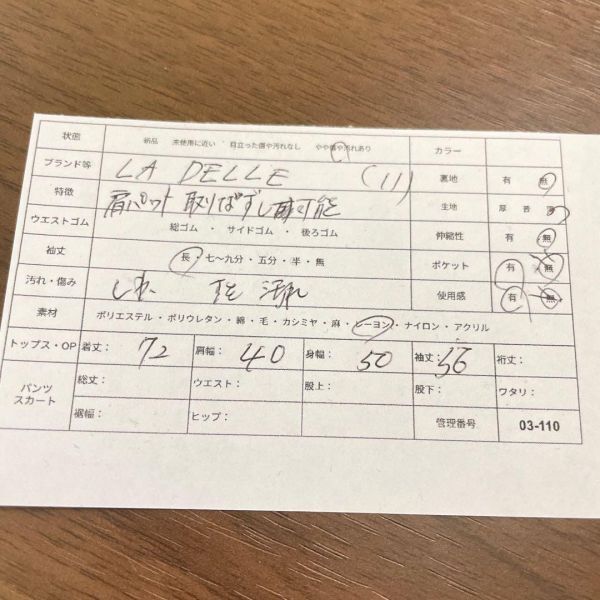 状態 新品 未使用に近い 目立った傷や汚れなし やや傷や汚れあり カラー
ブランド等 LA DELLE (11) 裏地 有 無
特徴 肩パット 取りはずし可能 生地 厚 普 薄
ウエストゴム 総ゴム ・ サイドゴム ・ 後ろゴム 伸縮性 有 無
袖丈 長・七〜九分・五分・半・無 ポケット 有 無
汚れ・傷み しわ 汚れ 使用感 有 無
素材 ポリエステル・ポリウレタン・綿・毛・カシミヤ・麻・レーヨン・ナイロン・アクリル
トップス・OP 着丈: 72 肩幅: 40 身幅: 50 袖丈: 56 裄丈:
パンツ スカート 総丈: ウエスト: 股上: 股下: ワタリ:
裾幅: ヒップ: 管理番号 03-110